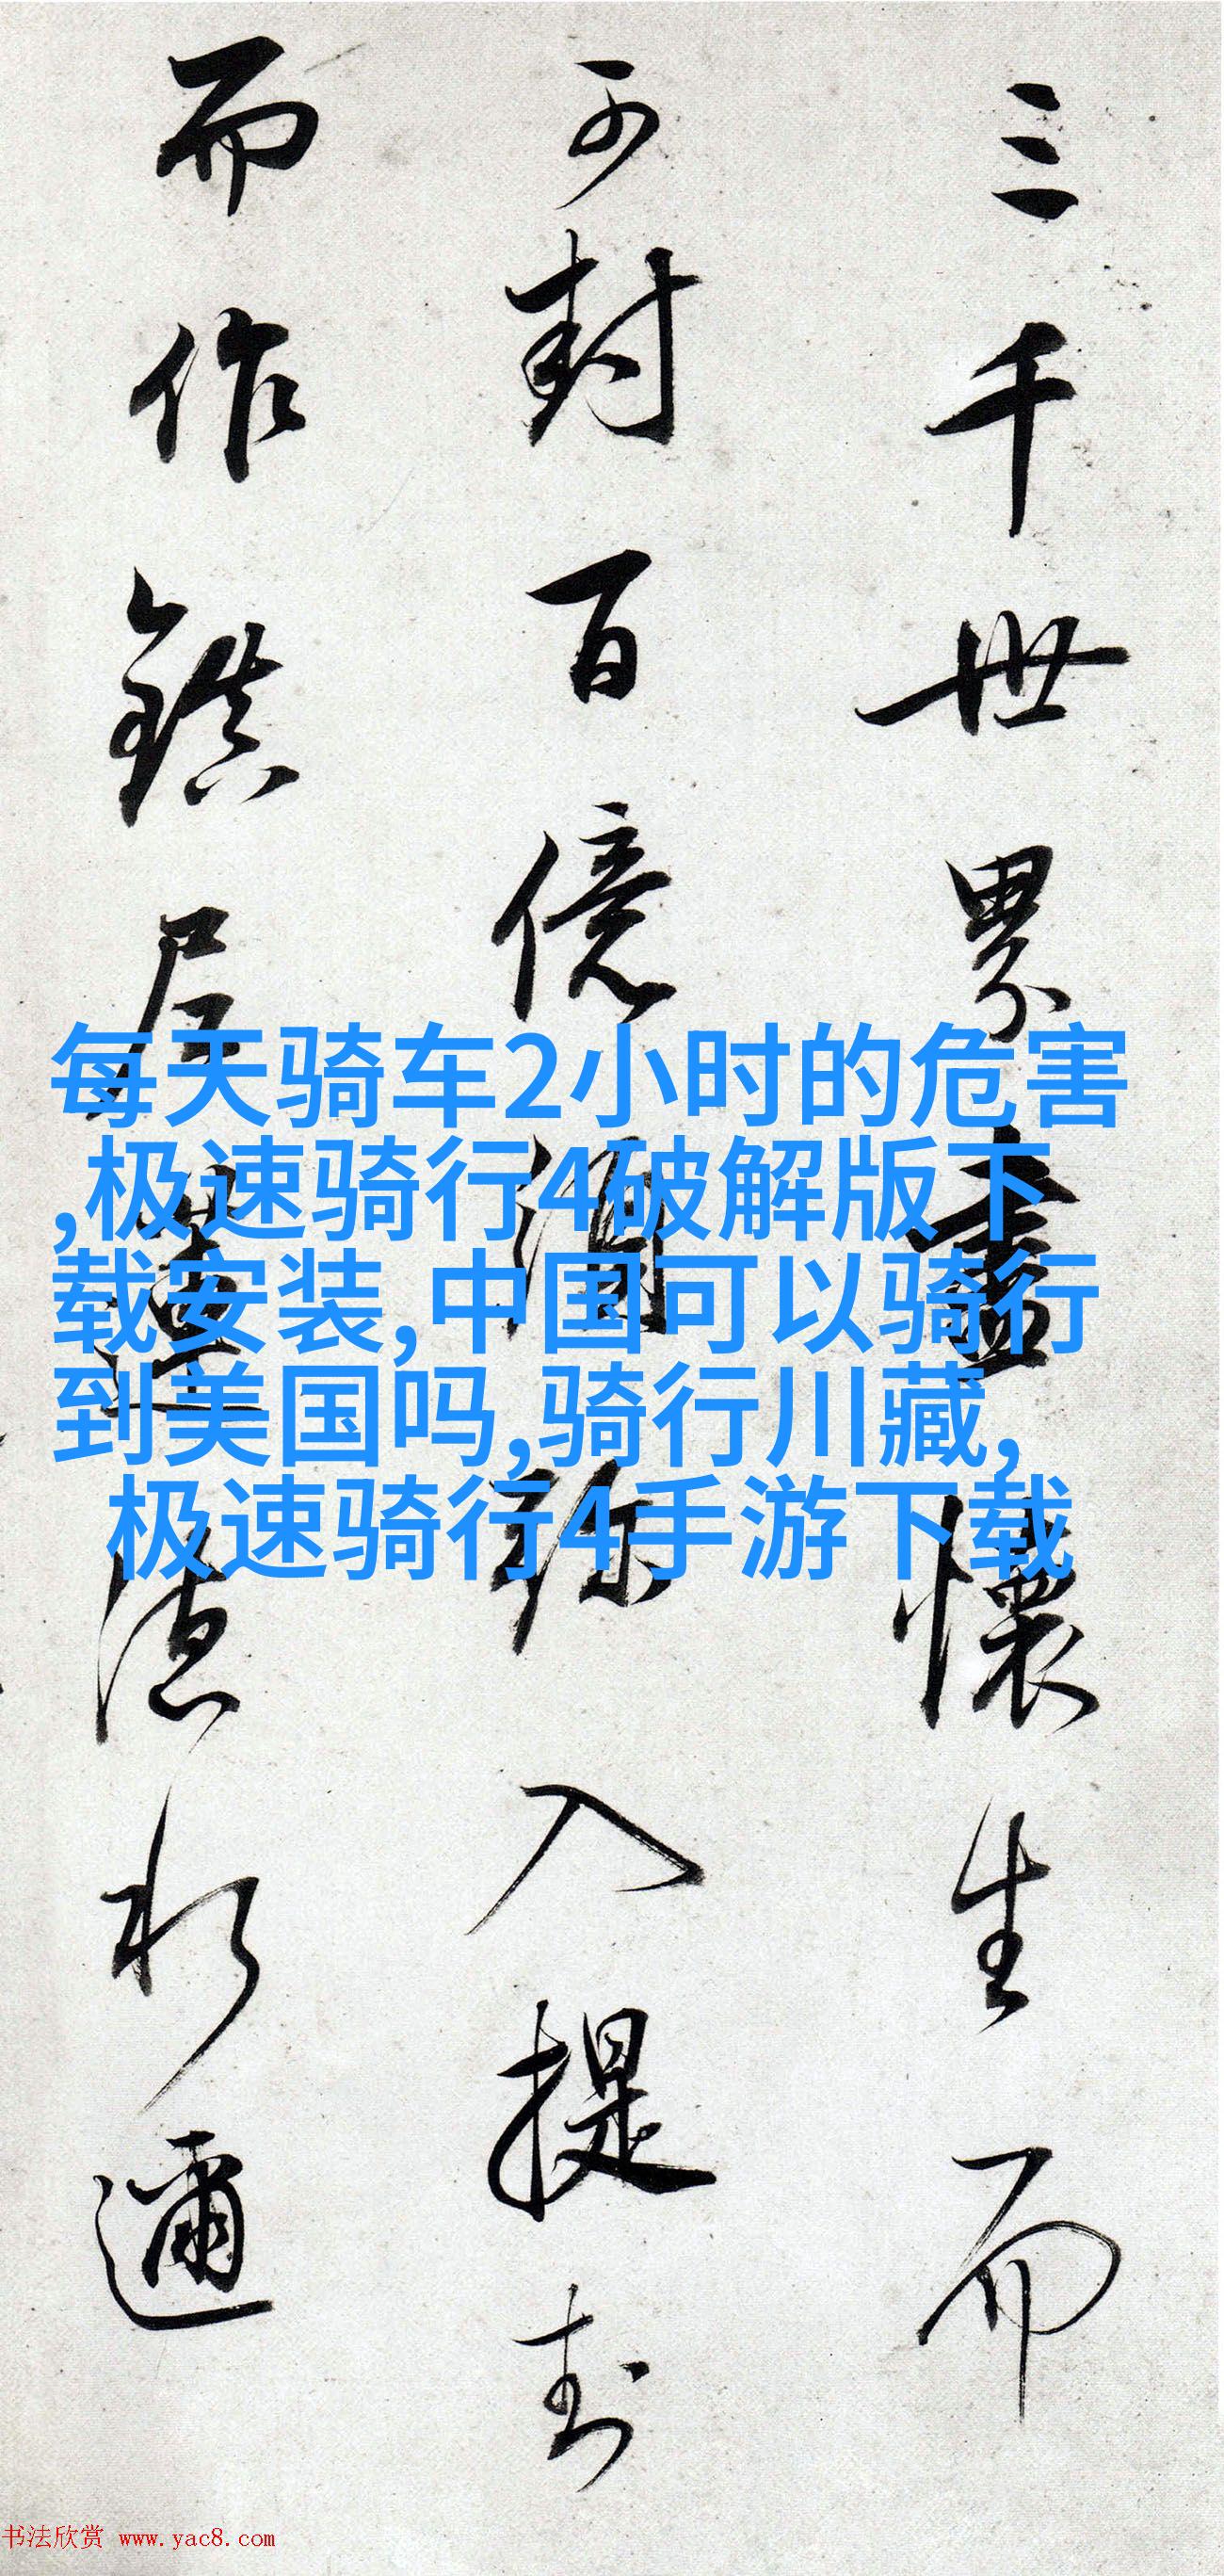 三千世界盡懷生而
可封百億須弥入提封
而作鎮尼連德水邇
每天骑车2小时的危害
,极速骑行4破解版下
载安装,中国可以骑行
到美国吗,骑行川藏,
极速骑行4手游下载
书法欣赏 www.yac8.com